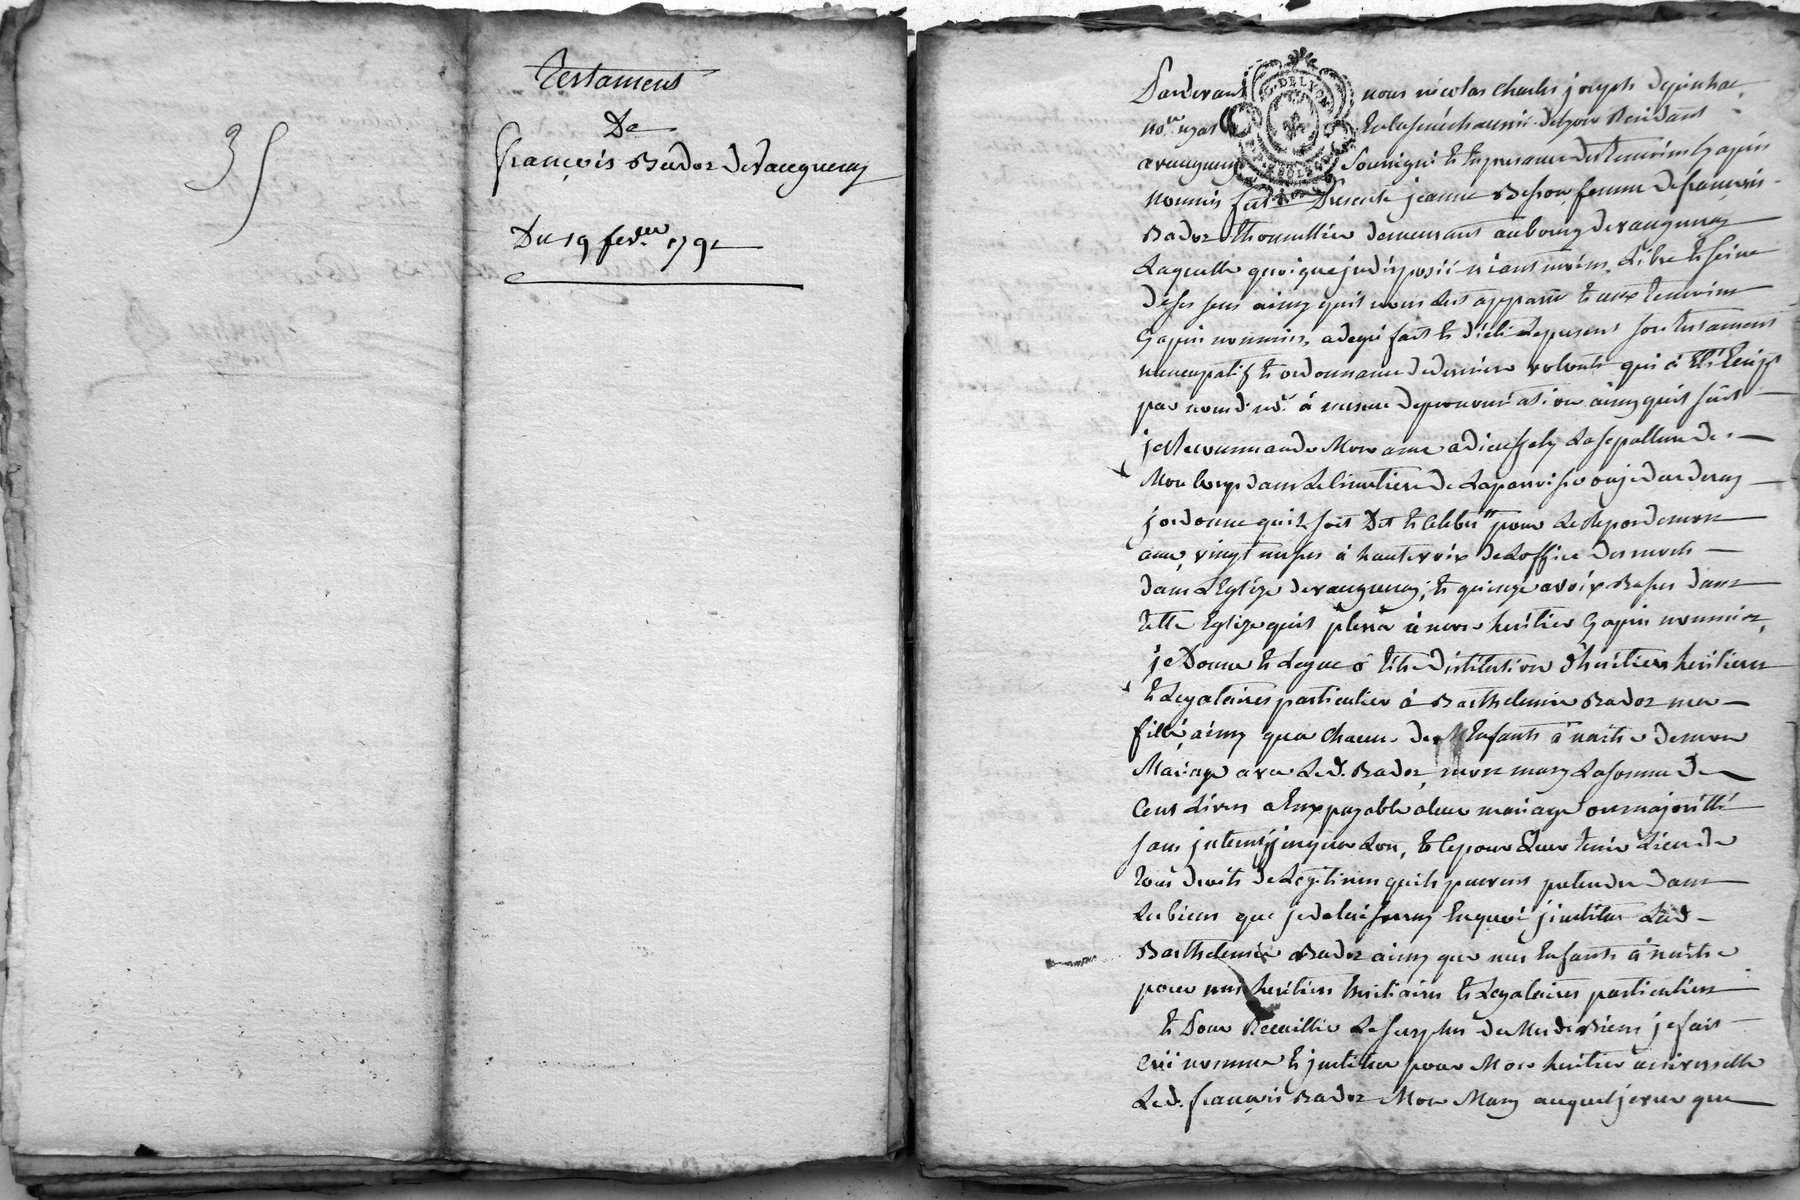 35
Testament
De
françois Bador devaugneray
Du 19 fevrier 1791
G. DE LYON
Pardevant nous nicolas charles joseph depinhac
no.re royal En la sénéchaussée delyon Residant
avaugneray soussigné Et En presence des temoins Eapres
nommés fut Presente jeanne Besson femme de françois
Bador thonnellier demeurant aubourg devaugneray
Laquelle quoique judisposéé néantmoins Libre Et saine
de ses sens ainsy quil nous Est apparu Et aux temoins
Eapres nommés, a de gré fait Et dicté Le present son testament
nuncupatif Et ordonnance de derniere volonté qui á Eté Ecript
par nous d. no.re á mesure de prononciation ainsy quil suit
je Recommande Mon ame a dieu La sepulture de
Mon Corps dans Le Cimetiere de La paroisse ou je decederay
j'ordonne quil soit Dit Et Celebré pour Le Repos de mon
ame, vingt messes á haute voix de L'office des morts
dans L'Eglise devaugneray, Et quinze a voix Basses dans
telle Eglize quil plerra á mon heritier Eapres nommé,
je Donne Et Legue á titre d'istitution d'héritiers
Et Legataires particulier á Barthelemie Bador ma
fille, ainsy qua Chacun de Enfants á naitre de mon
Mariage avec Le d. Bador mon mary La somme de
Cent Livres a Eux payable a leur mariage ou majoritté
sans jnterest jusques Lors, Et Ce pour Leur tenir Lieu de
tous droits de Legitimes quils pourront pretendre dans
Les biens que je delaisseray En quoi j'institue Lad.
Barthelemie Bador ainsy que mes Enfants á naitre
pour mes heritiers Et Legataires particuliers
Et Pour Recuillir Le surplus de Mes biens je fais
Créé nomme Et jnstitue pour Mon heritier universelle
Led. françois Bador Mon Mary auquel je veux que